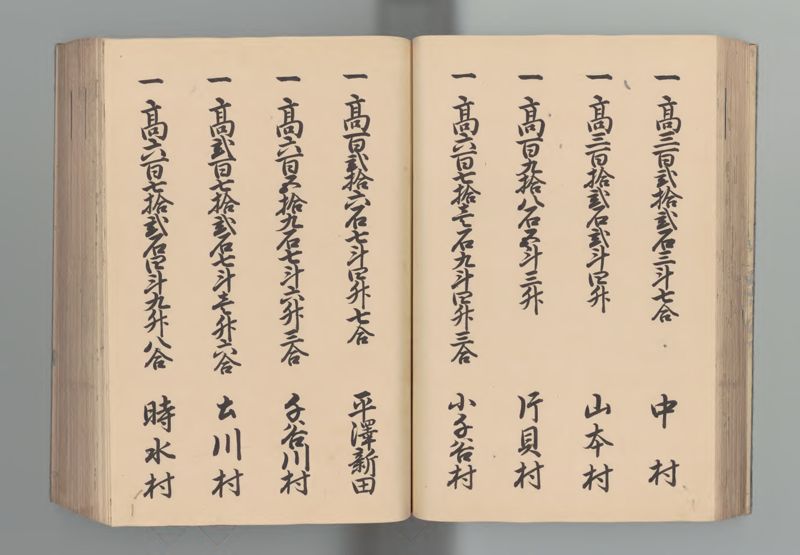 一 高三百弐拾弐石三斗七合 中村
一 高三百拾弐石弐斗四升 山本村
一 高百九拾八石五斗三升 片貝村
一 高六百七拾壱石九斗四升三合 小千谷村
一 高百弐拾六石七斗四升七合 平澤新田
一 高六百五拾九石七斗六升三合 千谷川村
一 高弐百七拾弐石七斗壱升六合 土川村
一 高六百七拾弐石四斗九升八合 時水村